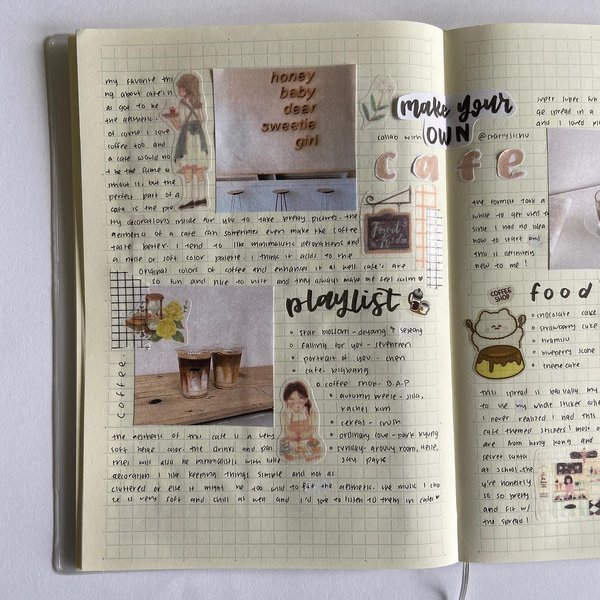 my favorite thi
ng about cafe's is
as got to be
the aesthetic.
of course i love
coffee too and
a cafe would no
t be the same w
ithout it, but the
perfect part of a
cafe is the pre
tty decorations inside for you to take pretty pictures. the
aesthetics of a cafe can sometimes even make the coffee
taste better. i tend to like minimalistic decorations and
a nice or soft color palette. i think it adds to the
original colors of coffee and enhances it as well. cafe's are
so fun and nice to visit and they always make me feel calm ♥
honey
baby
dear
sweetie
girl
coffee.
playlist
star blossom - doyoung & sejeong
falling for you - seventeen
portrait of you - chen
cafe - bigbang
coffee shop - B.A.P
autumn breeze - jida,
rachel kim
cereal - crush
ordinary love - park kyung
sunday - groovy room, heize,
jay park
the aesthetic of this cafe is a very
soft beige color. the drinks and pas
tries will also be minimalistic with little
decoration. i like keeping things simple and not as
cluttered or else it might be too wild to fit the aesthetic. the music i cho
se is very soft and chill as well and i'd love to listen to them in cafes ♥
make your
OWN
collab with @starrysichu
cafe
super super fun
ge spread in a
and i loved
the format took a
while to get used to
since i had no idea
how to start and
this is definitely
new to me!
COFFEE
SHOP
food
chocolate cake
strawberry cake
tiramisu
blueberry scone
cheese cake
this spread is basically my
to use my whole sticker
i never realized i had this
cafe themed stickers! most
are from hong kong and
secret santa
at school. the
y're honestly
so so pretty
and fit w/
the spread!